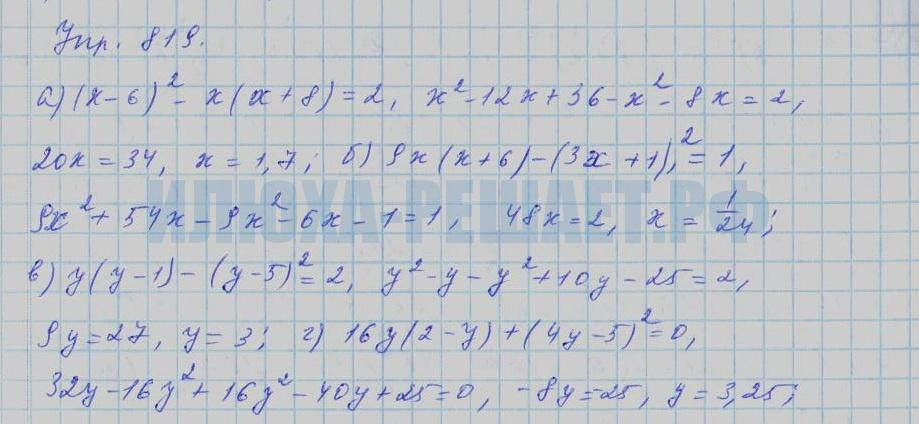 Упр. 819.
а) (x-6)² - x(x+8) = 2, x² - 12x + 36 - x² - 8x = 2,
20x = 34, x = 1,7; б) 9x(x+6) - (3x+1)² = 1,
ИЛЮХА-РЕШАЕТ.РФ
9x² + 54x - 9x² - 6x - 1 = 1, 48x = 2, x = 1/24;
в) y(y-1) - (y-5)² = 2, y² - y - y² + 10y - 25 = 2,
9y = 27, y = 3; г) 16y(2-y) + (4y-5)² = 0,
32y - 16y² + 16y² - 40y + 25 = 0, -8y = 25, y = 3,25;